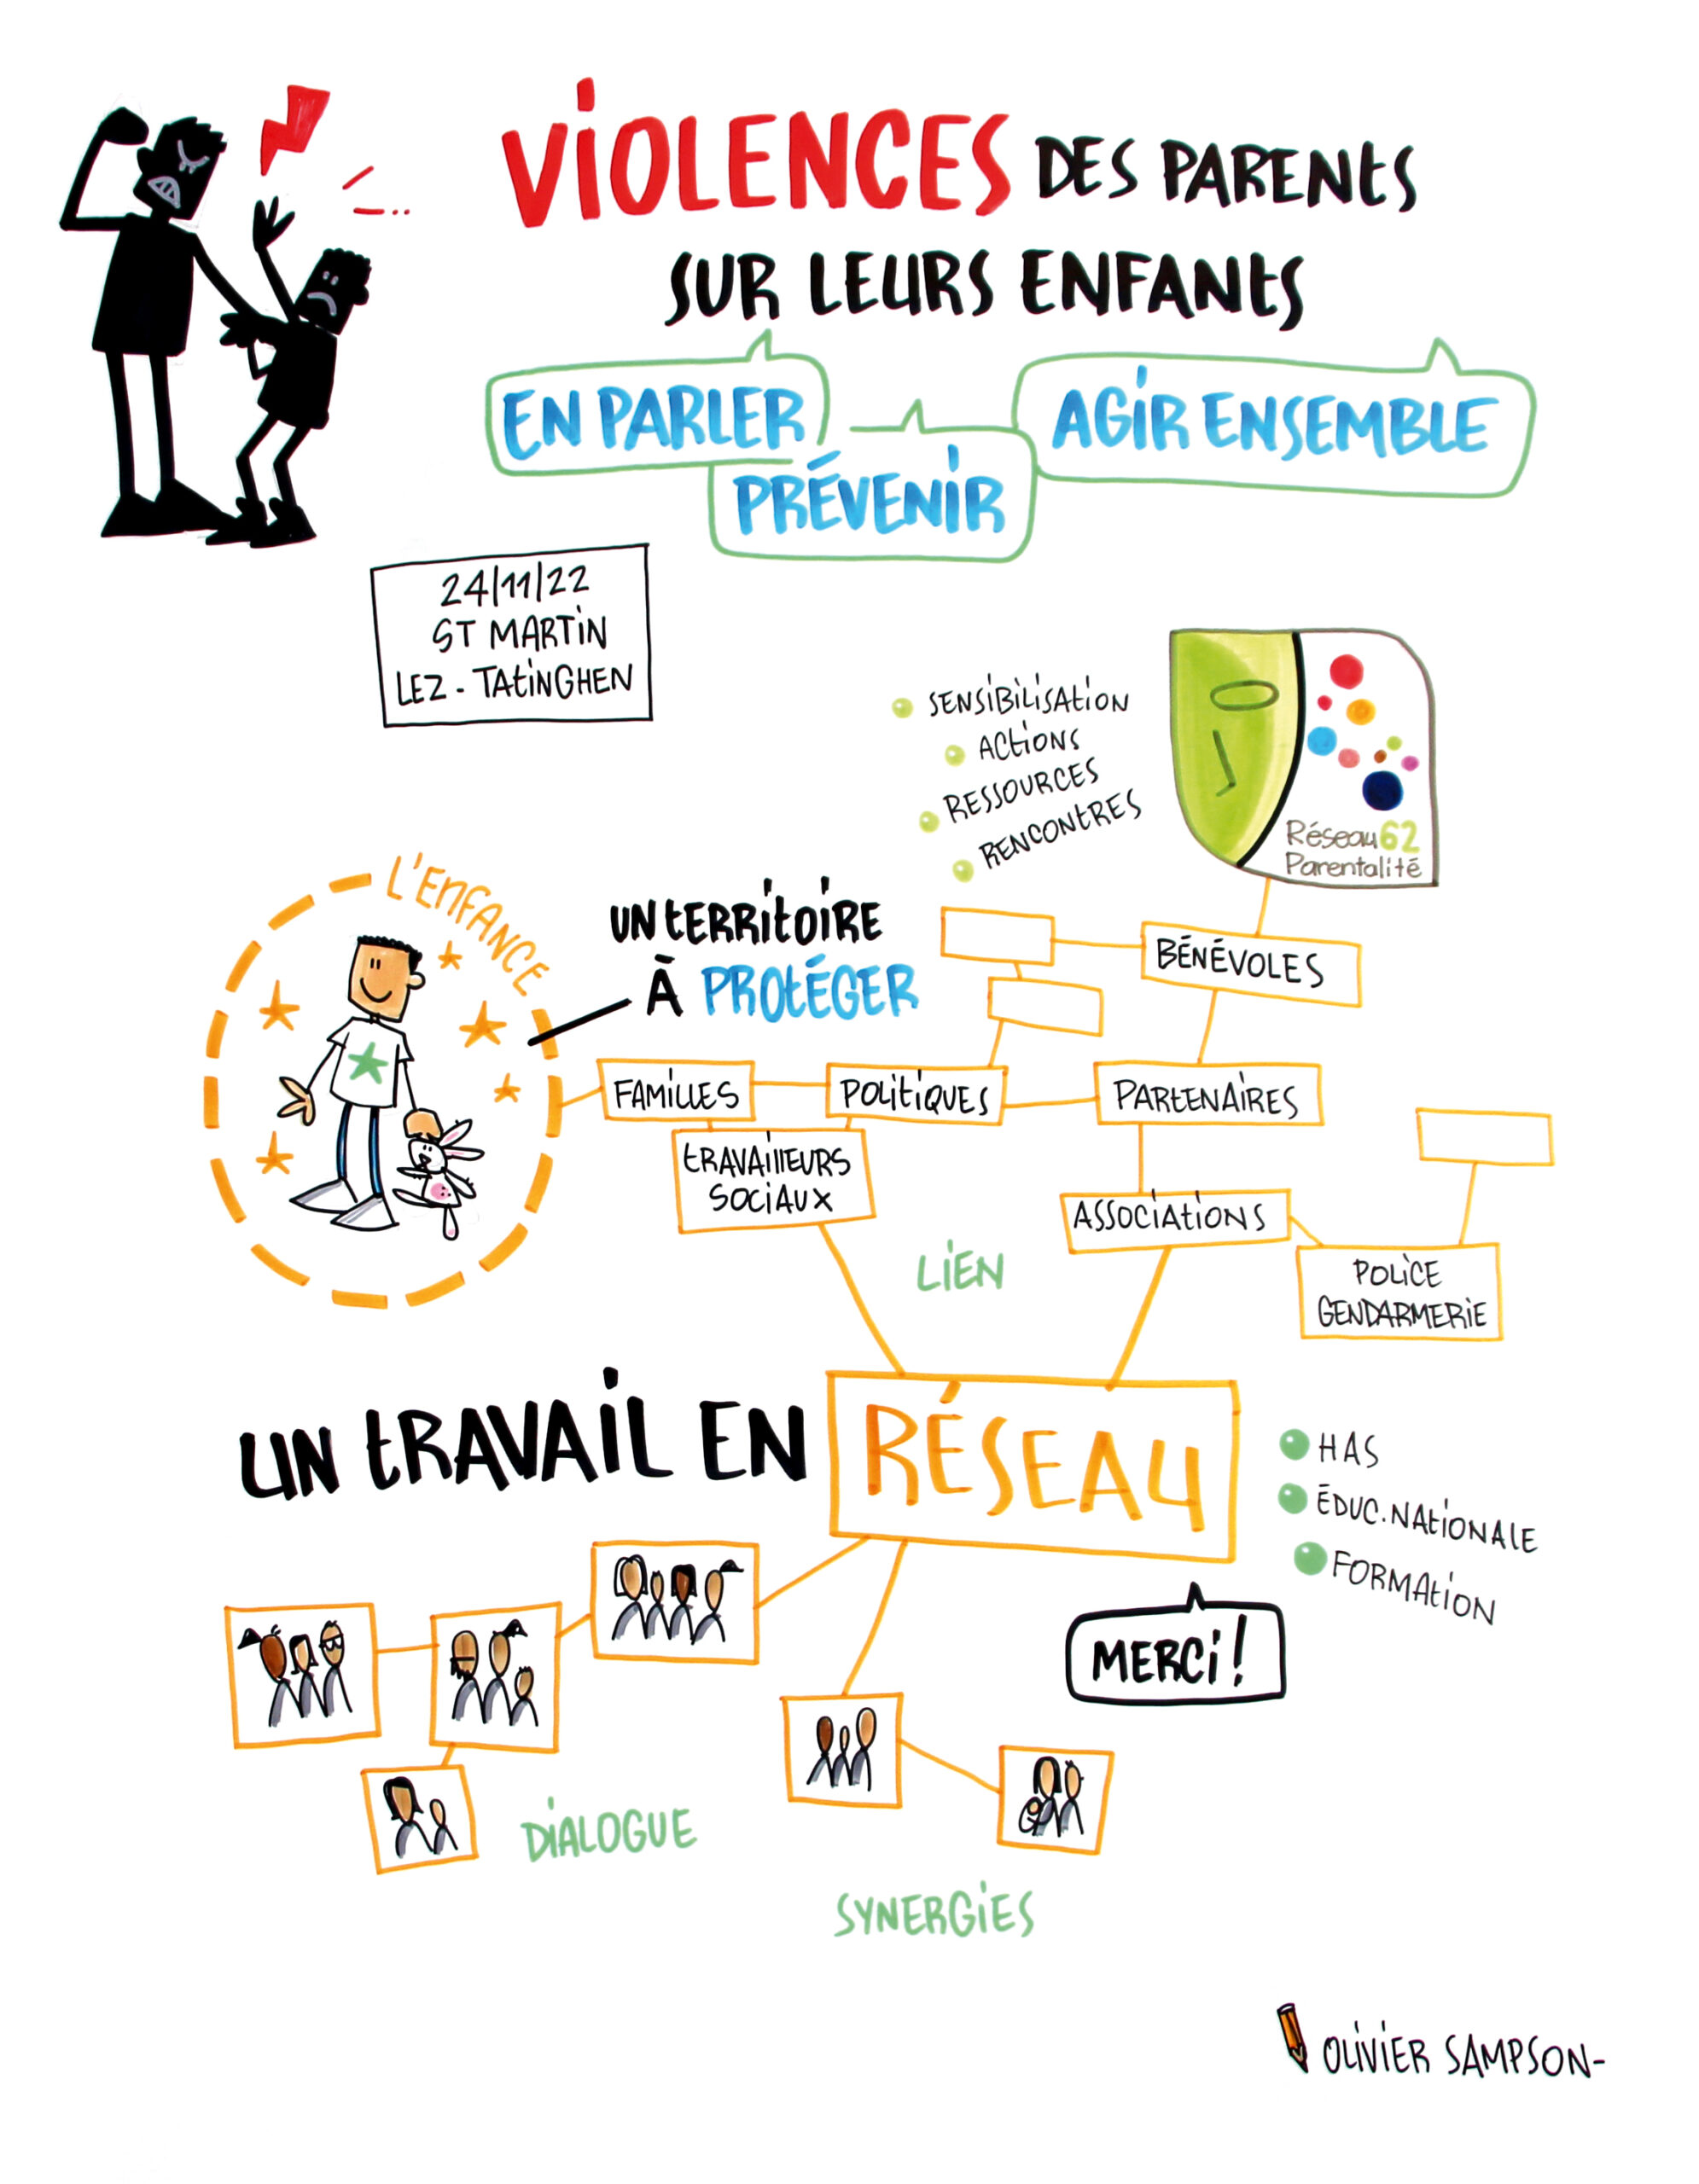 VIOLENCES DES PARENTS
SUR LEURS ENFANTS
EN PARLER
AGIR ENSEMBLE
PRÉVENIR
24/11/22
ST MARTIN
LEZ - TATINGHEN
SENSIBILISATION
ACTIONS
RESSOURCES
RENCONTRES
Réseau 62
Parentalité
L'ENFANCE
UN TERRITOIRE
À PROTÉGER
BÉNÉVOLES
FAMILLES
POLITIQUES
PARTENAIRES
TRAVAILLEURS
SOCIAUX
ASSOCIATIONS
LIEN
POLICE
GENDARMERIE
UN TRAVAIL EN RÉSEAU
HAS
ÉDUC. NATIONALE
FORMATION
MERCI !
DIALOGUE
SYNERGIES
OLIVIER SAMPSON-